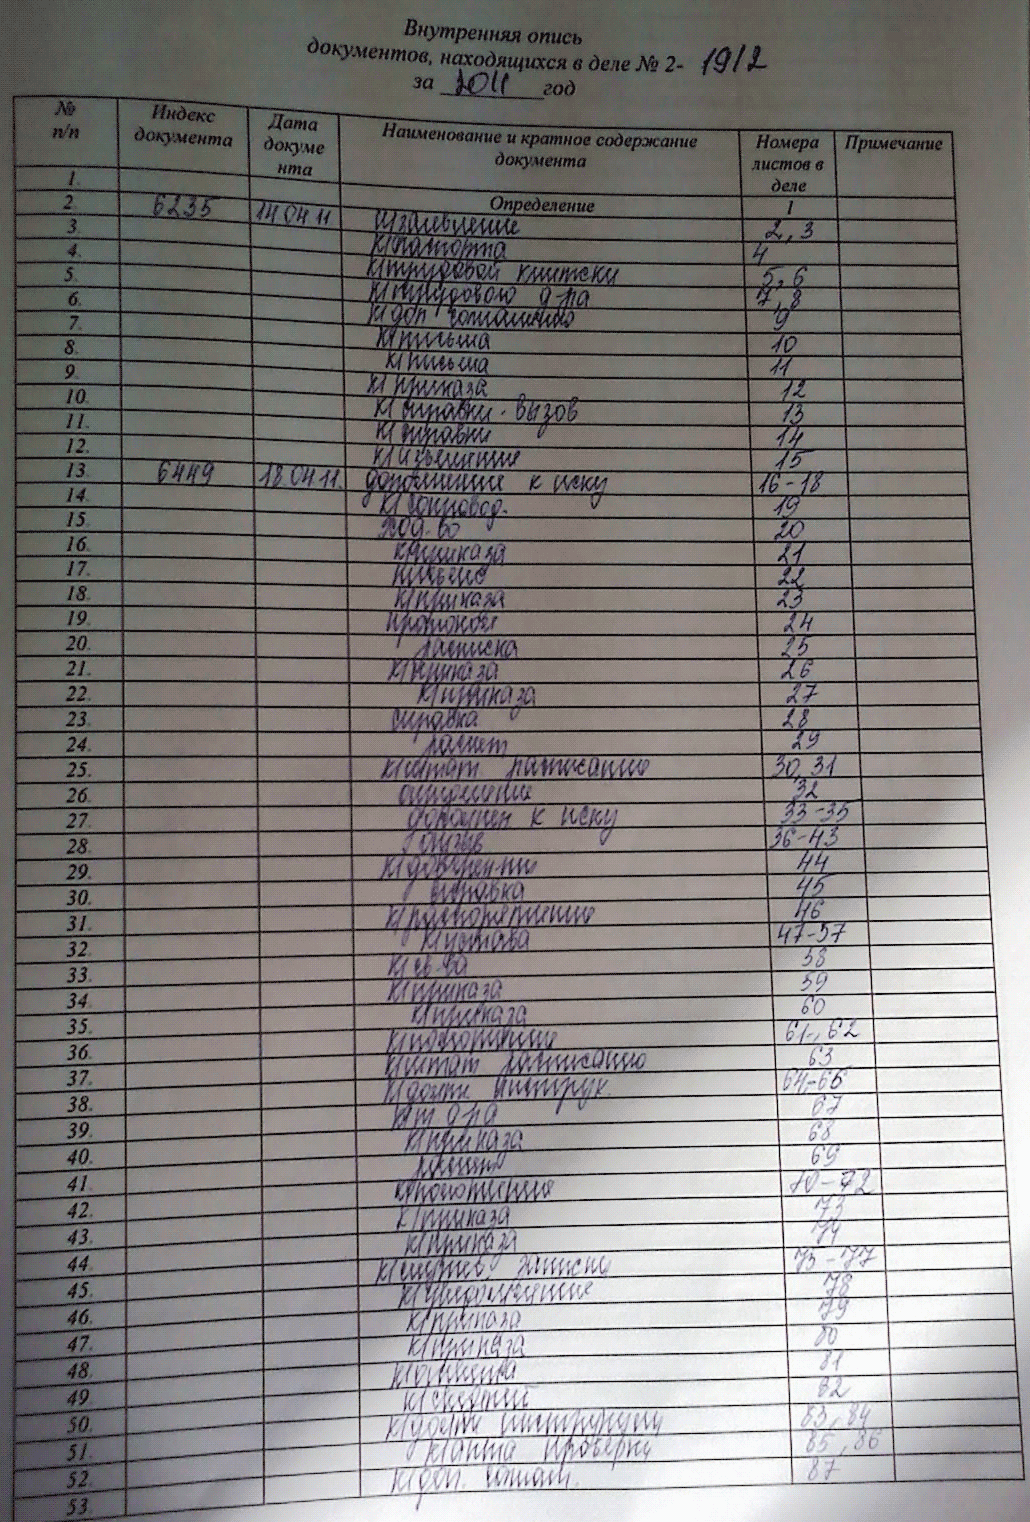 Внутренняя опись
документов, находящихся в деле № 2- 1912
за 2011 год
№ п/п Индекс документа Дата докуме нта Наименование и кратное содержание документа Номера листов в деле Примечание
1. Определение 1
2. 6235 14.04.11 и/заявление 2, 3
3. к/паспорта 4
4. к/трудовой книжки 5, 6
5. к/трудового д-ра 7, 8
6. к/доп. соглашению 9
7. к/письма 10
8. к/письма 11
9. к/приказа 12
10. к/справки-вызов 13
11. к/справки 14
12. к/извещение 15
13. 6449 18.04.11. дополнение к иску 16-18
14. к/сопровод. 19
15. ход-во 20
16. к/приказа 21
17. письмо 22
18. к/приказа 23
19. протокол 24
20. расписка 25
21. к/приказа 26
22. к/приказа 27
23. справка 28
24. расчет 29
25. к/штат. расписание 30, 31
26. 32
27. дополнен к иску 33-35
28. отзыв 36-43
29. к/доверен-ти 44
30. справка 45
31. к/распоряжение 46
32. к/устава 47-57
33. к/св-ва 58
34. к/приказа 59
35. к/приказа 60
36. к/положение 61, 62
37. к/штат. расписанию 63
38. к/должн. инструк. 64-66
39. к/т. д-ра 67
40. к/приказа 68
41. 69
42. к/положение 70-72
43. к/приказа 73
44. к/приказа 74
45. к/служеб. записки 75-77
46. к/уведомление 78
47. к/приказа 79
48. к/приказа 80
49. 81
50. к/сведений 82
51. к/должн. инструкции 83, 84
52. к/акта проверки 85, 86
53. к/доп. соглаш. 87